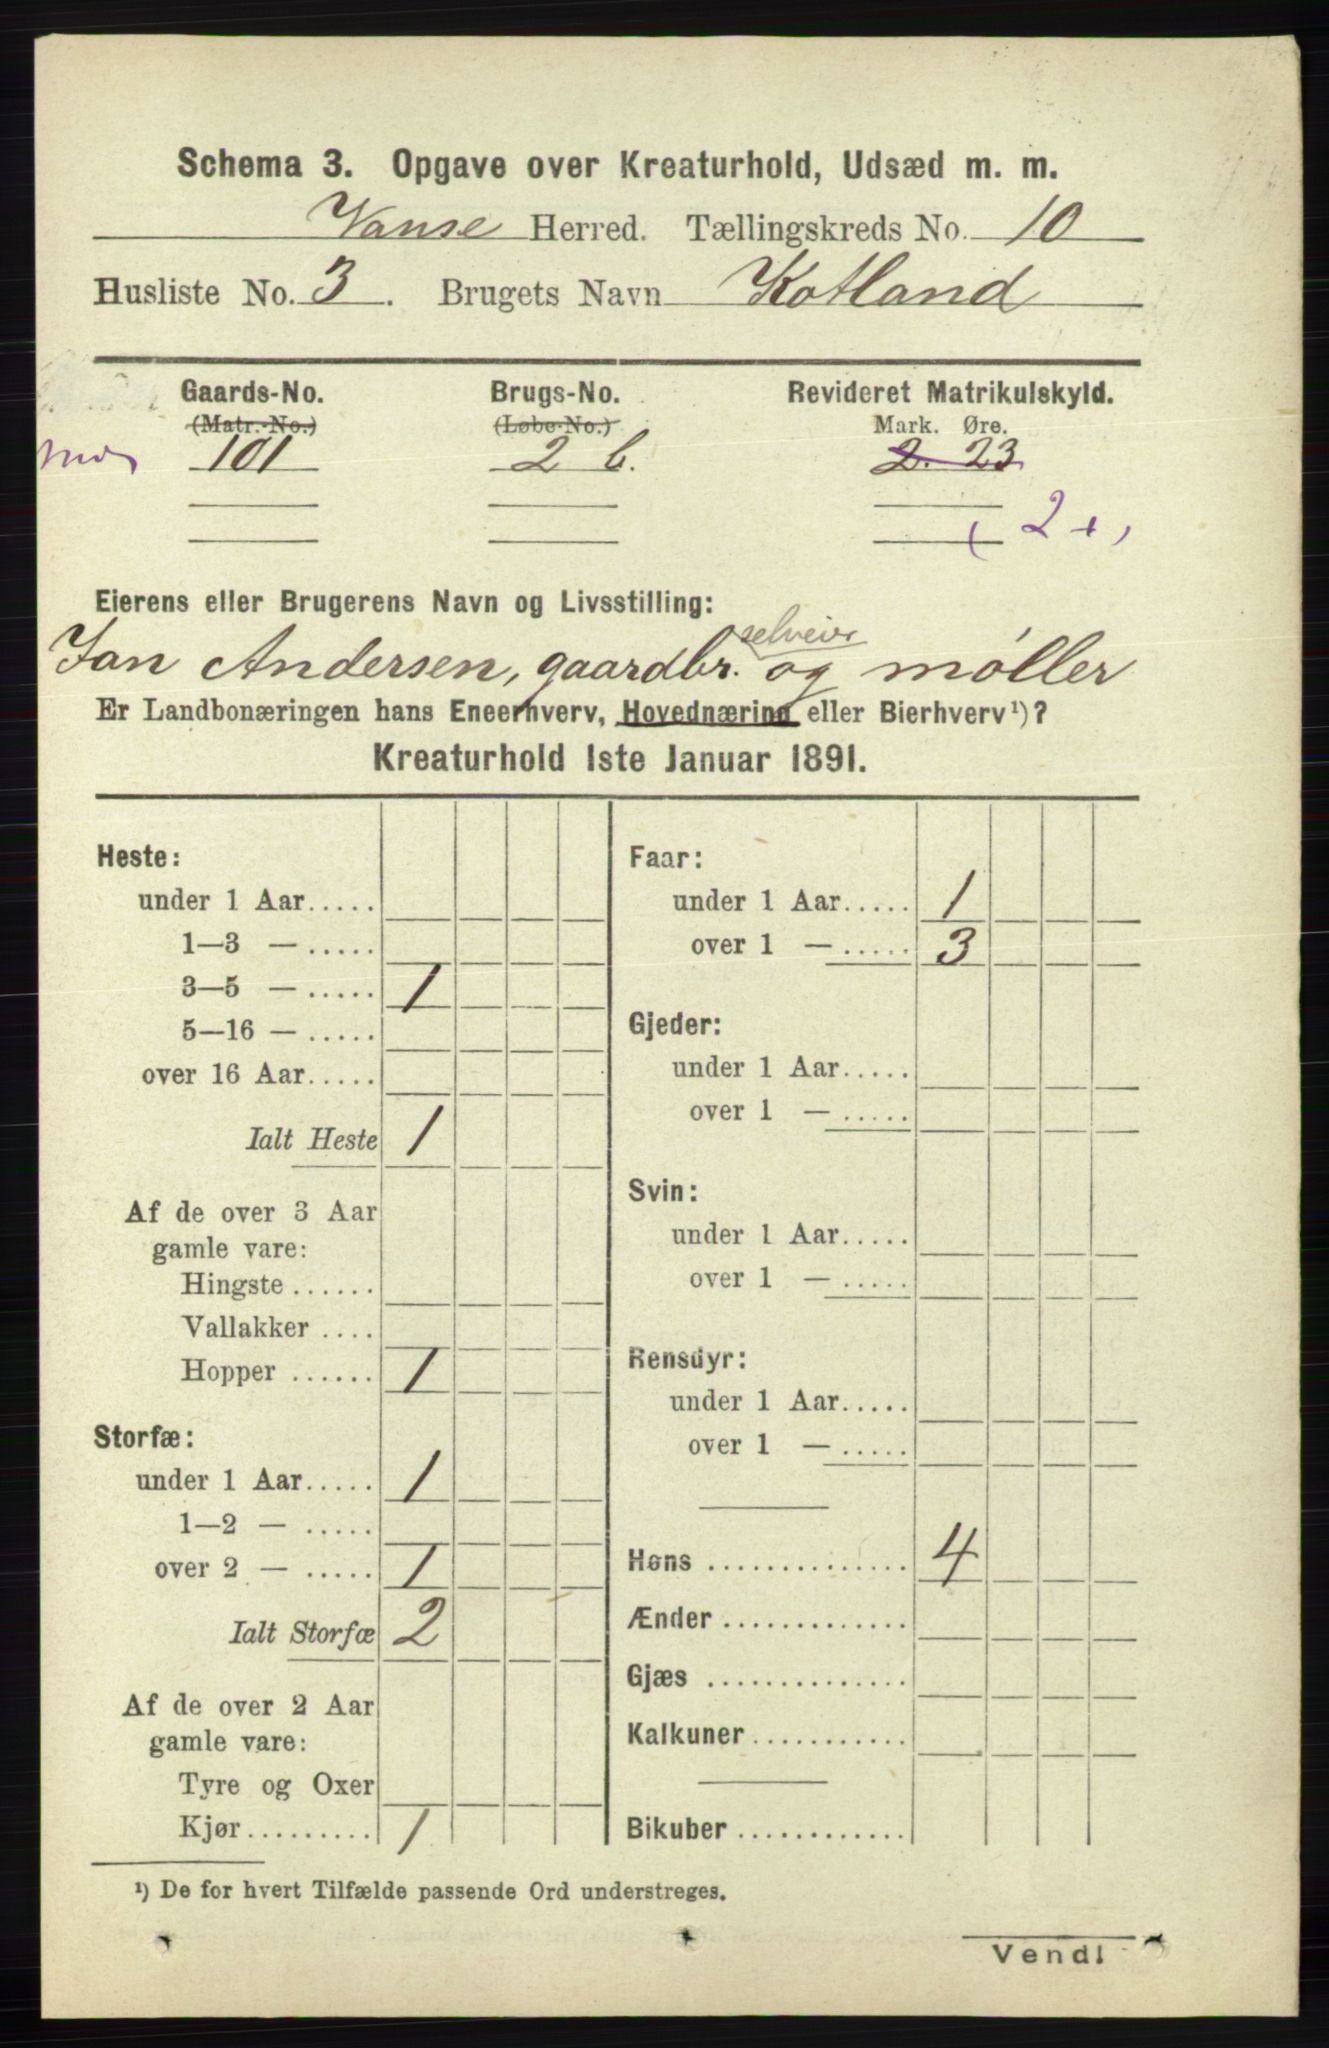 Schema 3. Opgave over Kreaturhold, Udsæd m. m.
Vanse Herred. Tællingskreds No. 10
Husliste No. 3. Brugets Navn Kotland
Gaards-No. Brugs-No. Revideret Matrikulskyld.
(Matr.-No.) (Løbe-No.) Mark. Øre.
101 2 b. 2. 23
2
Eierens eller Brugerens Navn og Livsstilling:
selveier
Jan Andersen, gaardbr. og møller
Er Landbonæringen hans Eneerhverv, Hovednæring eller Bierhverv¹)?
Kreaturhold 1ste Januar 1891.
Heste:
under 1 Aar.....
1—3 — .....
3—5 — ..... 1
5—16 — .....
over 16 Aar.....
Ialt Heste 1
Af de over 3 Aar
gamle vare:
Hingste ......
Vallakker ....
Hopper ...... 1
Storfæ:
under 1 Aar..... 1
1—2 — .....
over 2 — ..... 1
Ialt Storfæ 2
Af de over 2 Aar
gamle vare:
Tyre og Oxer
Kjør......... 1
Faar:
under 1 Aar..... 1
over 1 — ..... 3
Gjeder:
under 1 Aar.....
over 1 — .....
Svin:
under 1 Aar.....
over 1 — .....
Rensdyr:
under 1 Aar.....
over 1 — .....
Høns .............. 4
Ænder .............
Gjæs ..............
Kalkuner ...........
Bikuber ............
¹) De for hvert Tilfælde passende Ord understreges.
Vend!